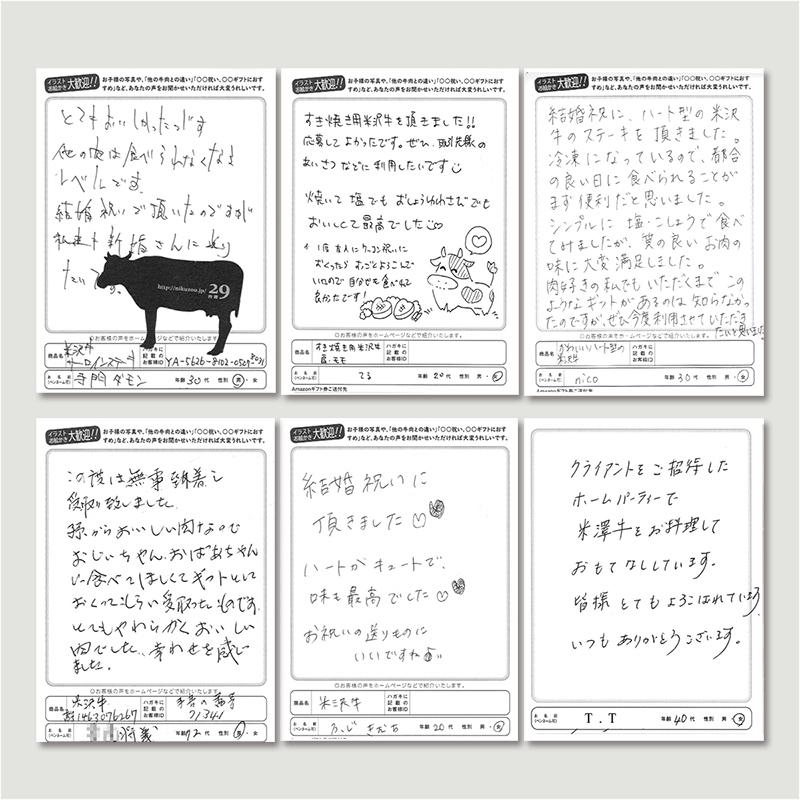 イラスト
お絵かき
大歓迎!!
お子様の写真や、「他の牛肉との違い」「〇〇祝い、〇〇ギフトにおす
すめ」など、あなたの声をお聞かせいただければ大変うれしいです。
とてもおいしかったです
他の肉は食べられなくなる
レベルです。
結婚祝いで頂いたのですが
私達も新婚さんに送り
たいです。
http://nikuzoo.jp/
29
◎お客様の声をホームページなどで紹介いたします。
商品名
米沢牛
サーロインステーキ
ハガキに
記載の
お客様ID
YA-5626-8102-0529
お名前
(ペンネーム可)
寺門ダモン
年齢 30代 性別 男・女
イラスト
お絵かき
大歓迎!!
お子様の写真や、「他の牛肉との違い」「〇〇祝い、〇〇ギフトにおす
すめ」など、あなたの声をお聞かせいただければ大変うれしいです。
すき焼き用米沢牛を頂きました!!
応募してよかったです。ぜひ、取引先様の
あいさつなどに利用したいです
焼いて塩でもおしょうゆわさびでも
おいしくて最高でした
おくったらすごくよろこんで
いたので自分でも食べれて
良かったです!
◎お客様の声をホームページなどで紹介いたします。
商品名
すき焼き用米沢牛
肩・モモ
ハガキに
記載の
お客様ID
お名前
(ペンネーム可)
てる
年齢 20代 性別 男・女
Amazonギフト券ご送付先
イラスト
お絵かき
大歓迎!!
お子様の写真や、「他の牛肉との違い」「〇〇祝い、〇〇ギフトにおす
すめ」など、あなたの声をお聞かせいただければ大変うれしいです。
結婚祝に、ハート型の米沢
牛のステーキを頂きました。
冷凍になっているので、都合
の良い日に食べられることが
まず便利だと思いました。
シンプルに塩・こしょうで食べ
てみましたが、質の良いお肉の
味に大変満足しました。
肉好きの私でもいただくまでこの
ようなギフトがあるのは知らなかっ
たのですが、ぜひ今度利用させていただき
たいと思いました
◎お客様の声をホームページなどで紹介いたします。
商品名
かわいいハート型の
米沢牛
ハガキに
記載の
お客様ID
お名前
(ペンネーム可)
nico
年齢 30代 性別 男・女
イラスト
お絵かき
大歓迎!!
お子様の写真や、「他の牛肉との違い」「〇〇祝い、〇〇ギフトにおす
すめ」など、あなたの声をお聞かせいただければ大変うれしいです。
この度は無事到着し
受取り致しました。
孫からおいしい肉なので
おじいちゃん、おばあちゃん
に食べてほしくてギフトとして
おくってもらい受取ったものです。
とてもやわらかくおいしい
肉でした。幸わせを感じ
ました。
◎お客様の声をホームページなどで紹介いたします。
商品名
米沢牛
1463076267
ハガキに
記載の
お客様ID
21341
お名前
(ペンネーム可)
年齢 72代 性別 男・女
イラスト
お絵かき
大歓迎!!
お子様の写真や、「他の牛肉との違い」「〇〇祝い、〇〇ギフトにおす
すめ」など、あなたの声をお聞かせいただければ大変うれしいです。
結婚祝いに
頂きました♡
ハートがキュートで、
味も最高でした♡
お祝いの送りものに
いいですね♪
◎お客様の声をホームページなどで紹介いたします。
商品名
米沢牛
ハガキに
記載の
お客様ID
お名前
(ペンネーム可)
年齢 20代 性別 男・女
Amazonギフト券ご送付先
クライアントをご招待した
ホームパーティーで
米澤牛をお料理して
おもてなししています。
皆様とてもよろこばれています
いつもありがとうございます。
お名前
(ペンネーム可)
T.T
年齢 40代 性別 男・女